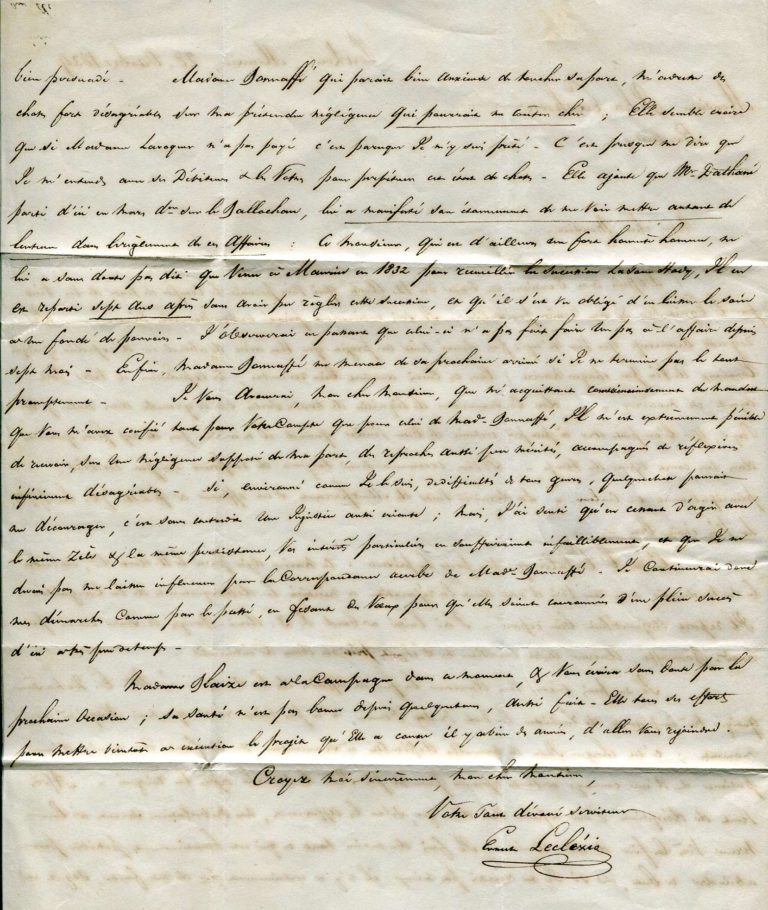 bien persuadé - Madame Bonnaffé qui parait bien anxieuse de toucher sa part, m'adresse des
choses fort désagréables sur ma prétendue négligence qui pourrait me couter cher ; Elle semble croire
que si Madame n'a pas payé c'est parceque Je m'y suis prêté - C'est presque me dire que
Je m'entends avec ses Débiteurs & les Votres pour perpétuer cet état de choses - Elle ajoute que Mr
parti d'ici en mars dr sur le lui a manifesté son étonnement de me voir mettre autant de
lenteur dans le règlement de ces Affaires : Ce Monsieur, qui est d'ailleurs un fort honnête homme, ne
lui a sans doute pas dit que Venu à Maurice en 1832 pour recueillir la Succession Il en
est reparti sept ans après sans avoir pu règler cette Succession, et qu'il s'est vu obligé d'en laisser le soin
à un fondé de pouvoirs - J'observerai en passant que celui-ci n'a pas fait faire Un pas à l'affaire depuis
sept mois - Enfin, Madame Bonnaffé me menace de sa prochaine arrivée si Je ne termine pas le tout
promptement - Je Vous Avouerai, mon cher Monsieur, que m'acquittant consciencieusement du mandat
que Vous m'avez confié tant pour Votre Compte que pour celui de Made Bonnaffé, Il m'est extrêmement pénible
de recevoir, sur Une négligence supposée de ma part, des reproches aussi peu mérités, accompagnés de réflexions
infiniment désagréables - Si, environné comme Je le suis, de difficultés de tous genres, quelquechose pouvait
me décourager, c'est sans contredit Une Injustice aussi criante ; mais, J'ai senti qu'en cessant d'agir avec
le même Zèle & la même persistance, Vos intérêts particuliers en souffriraient infailliblement, et que Je ne
devais pas me laisser influencer par la Correspondance acerbe de Made Bonnaffé - Je Continuerai donc
mes démarches Comme par le passé, en fesant des Vœux pour qu'elles soient couronnées d'un plein succès
d'ici à très peu de tems -
Madame Blaize est à la Campagne dans ce moment, & Vous écrira sans doute par la
prochaine Occasion ; Sa santé n'est pas bonne depuis quelquetems, Aussi fait-Elle tous ses efforts
pour mettre bientôt à exécution le projet qu'Elle a conçu il y a bien des années, d'aller Vous rejoindre.
Croyez moi sincèrement, mon cher Monsieur,
Votre Tout dévoué serviteur
Ernest Leclézio